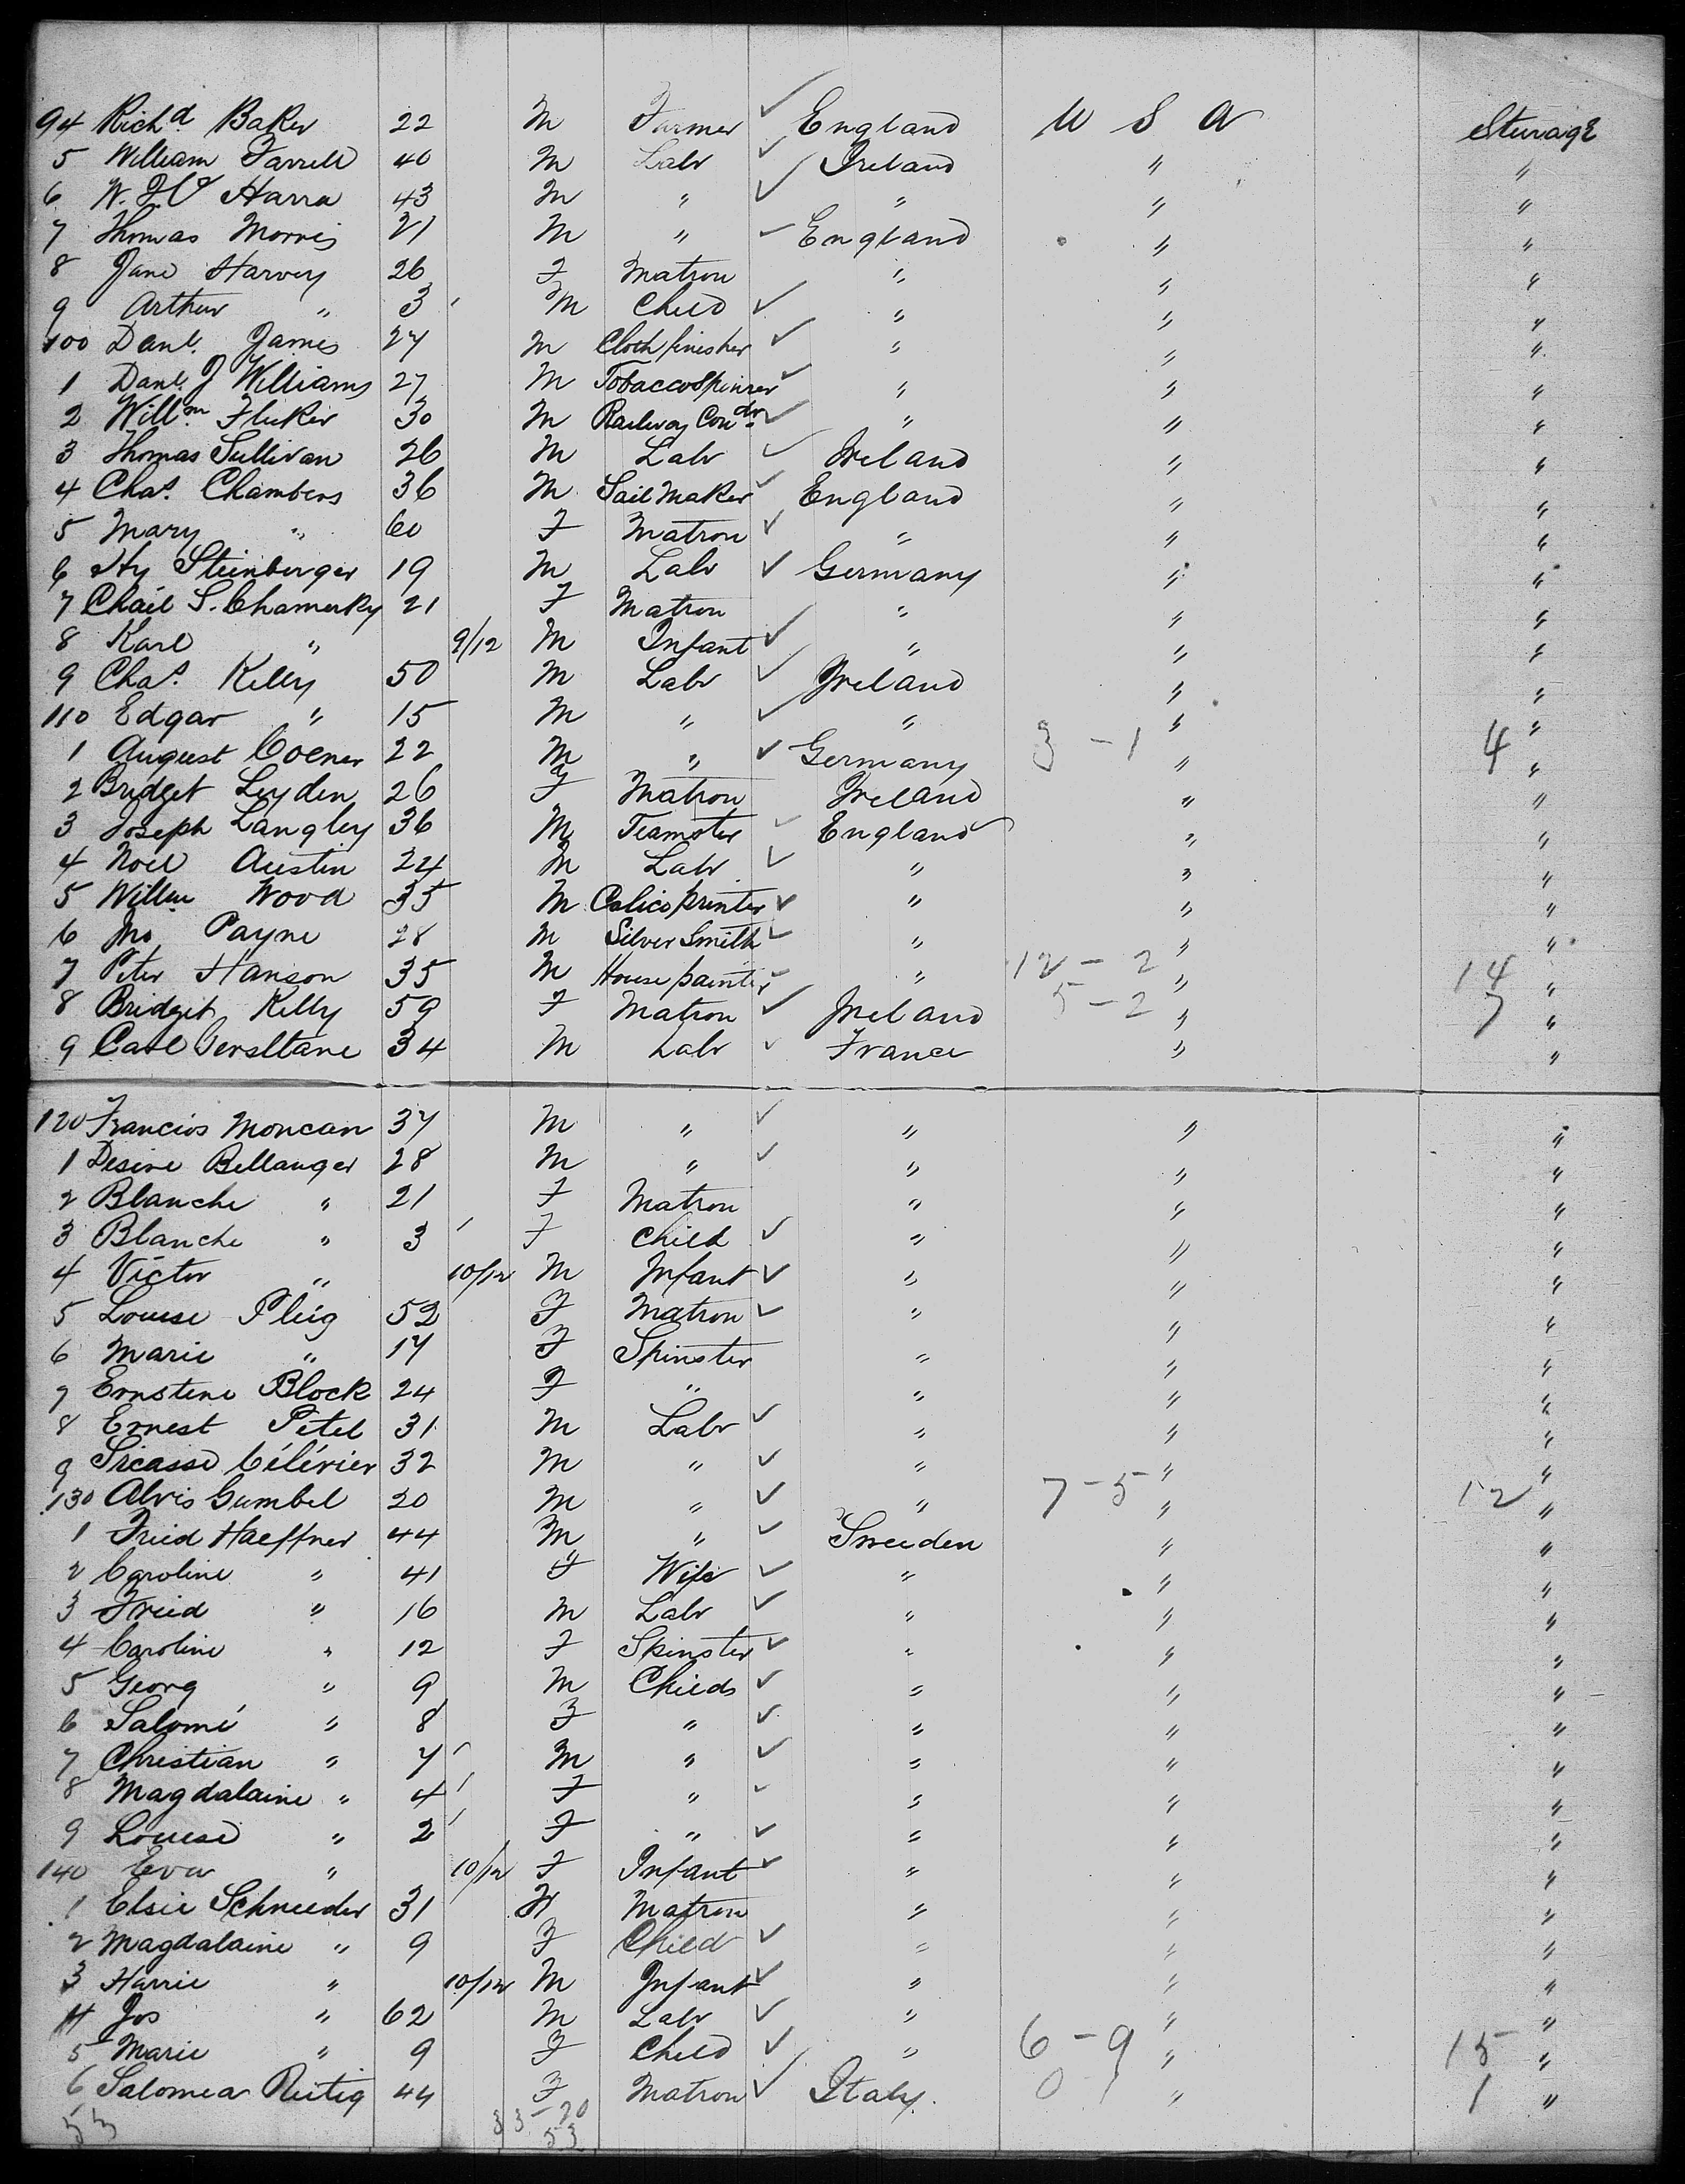 94 Richd. Baker 22 M Farmer ✓ England U S A Sturage
5 William Farrell 40 M Labr ✓ Ireland " "
6 Harra 43 M " ✓ " " "
7 Thomas Morris 21 M " ✓ England " "
8 Jane Harvey 26 F Matron " " "
9 Arthur " 3 M Child ✓ " " "
100 Danl. James 27 M Cloth finisher ✓ " " "
1 Danl. J Williams 27 M Tobacco Spinner ✓ " " "
2 Willm Fluker 30 M Railway Condr ✓ " " "
3 Thomas Sullivan 26 M Labr ✓ Ireland " "
4 Chas. Chambers 36 M Sail Maker ✓ England " "
5 Mary " 60 F Matron ✓ " " "
6 Hy Steinberger 19 M Labr ✓ Germany " "
7 S. Chamerky 21 F Matron " " "
8 Karl " 9/12 M Infant ✓ " " "
9 Chas. Kelly 50 M Labr ✓ Ireland " "
110 Edgar " 15 M " ✓ " " "
1 August Coener 22 M " ✓ Germany 3 - 1 " 4 "
2 Bridget Leyden 26 F Matron Ireland " "
3 Joseph Langley 36 M Teamster ✓ England " "
4 Noel Austin 24 M Labr ✓ " " "
5 Willm Wood 35 M Calico printer ✓ " " "
6 Jno Payne 28 M Silver Smith ✓ " " "
7 Peter Hanson 35 M House painter ✓ " 12 - 2 " 14 "
8 Bridget Kelly 59 F Matron ✓ Ireland 5 - 2 " 7 "
9 Carl 34 M Labr ✓ France " "
120 Francios Moncan 37 M " ✓ " " "
1 Desire Bellanger 28 M " ✓ " " "
2 Blanche " 21 F Matron " " "
3 Blanche " 3 F Child ✓ " " "
4 Victor " 10/12 M Infant ✓ " " "
5 Louise Pleig 52 F Matron ✓ " " "
6 Marie " 17 F Spinster " " "
7 Ernstene Block 24 F " " " "
8 Ernest Petel 31 M Labr ✓ " " "
9 Sicasse Célérier 32 M " ✓ " " "
130 Alvis Gumbel 20 M " ✓ " 7 - 5 " 12 "
1 Fried Haeffner 44 M " ✓ Sweeden " "
2 Caroline " 41 F Wife ✓ " " "
3 Fried " 16 M Labr ✓ " " "
4 Caroline " 12 F Spinster ✓ " " "
5 Georg " 9 M Childs ✓ " " "
6 Salomé " 8 F " ✓ " " "
7 Christian " 7 M " ✓ " " "
8 Magdalaine " 4 F " ✓ " " "
9 Louise " 2 F " ✓ " " "
140 Eva " 10/12 F Infant ✓ " " "
1 Elsie Schneeder 31 F Matron " " "
2 Magdalaine " 9 F Child ✓ " " "
3 Harrie " 10/12 M Infant ✓ " " "
4 Jos " 62 M Labr ✓ " " "
5 Marie " 9 F Child ✓ " 6 - 9 " 15 "
6 Salomea Reitig 44 F Matron ✓ Italy. 0 - 1 " 1 "
53 33 - 20
53